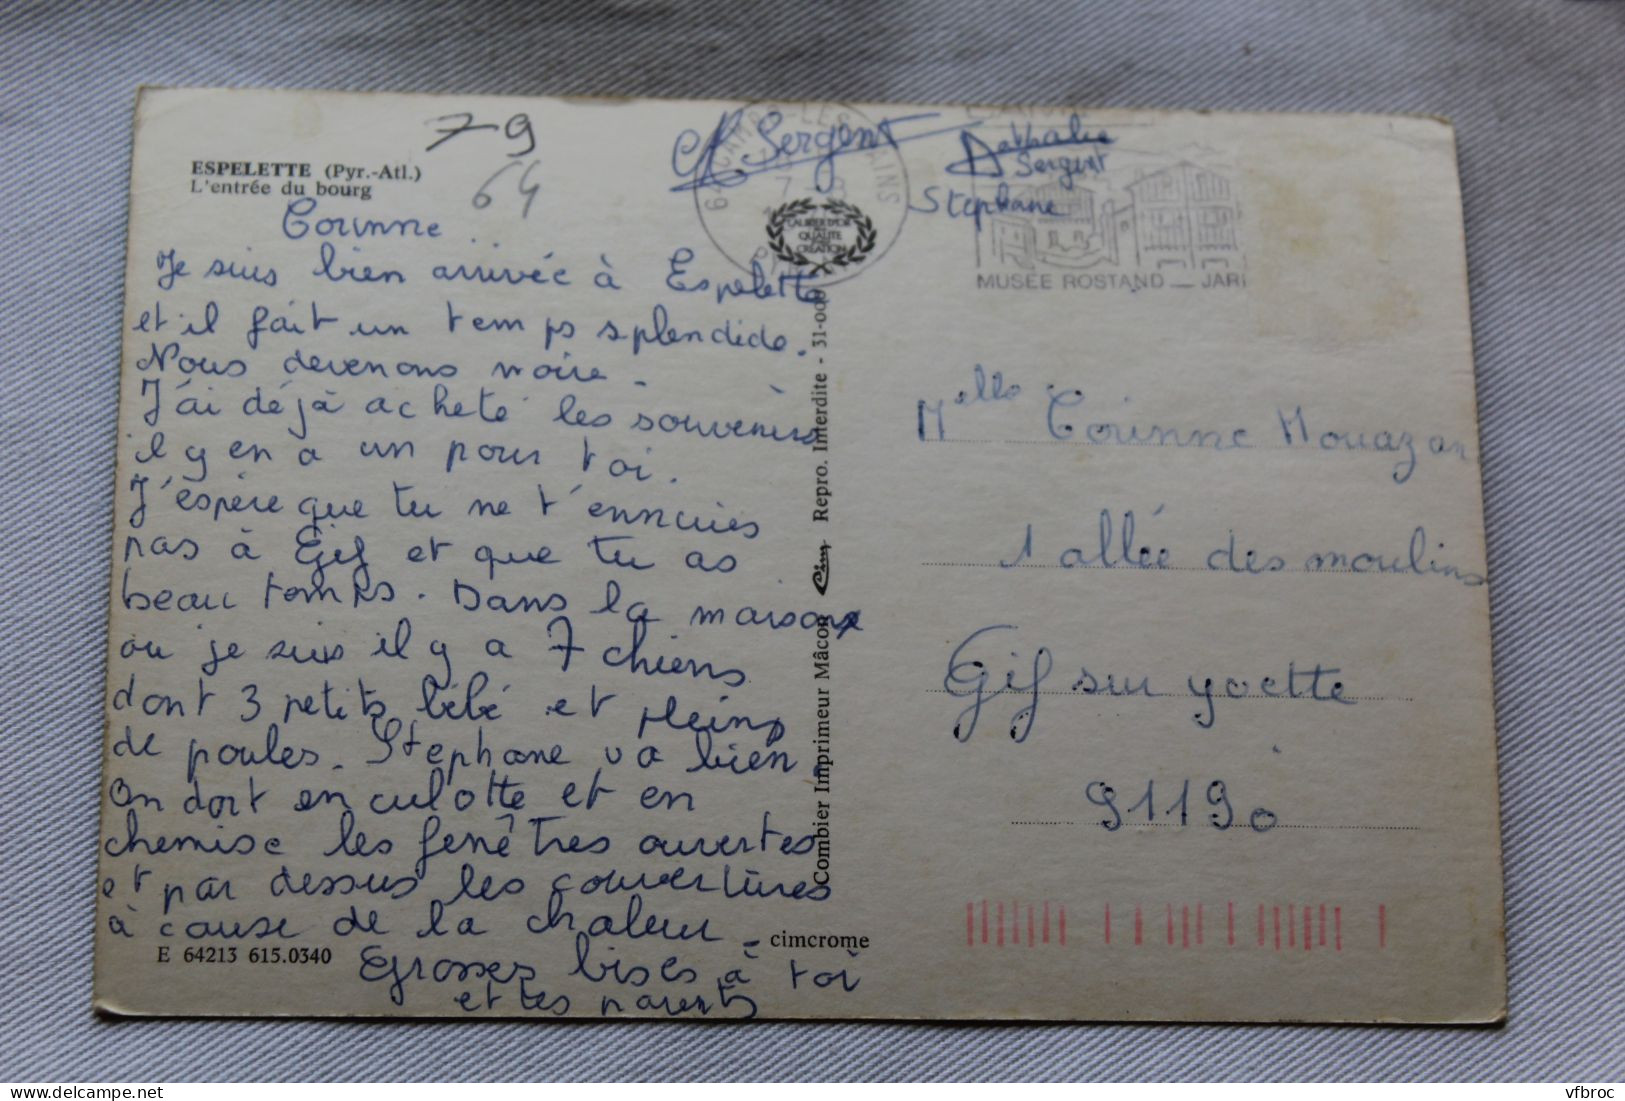 79
64
ESPELETTE (Pyr.-Atl.)
L'entrée du bourg
Corinne
Je suis bien arrivée à Espelette
et il fait un temps splendide.
Nous devenons noire.
J'ai déjà acheté les souvenirs
il y en a un pour toi.
J'espère que tu ne t'ennuies
pas à Gif et que tu as
beau temps. Dans la maison
ou je suis il y a 7 chiens
dont 3 petits bébé et pleins
de poules. Stephane va bien.
On dort en culotte et en
chemise les fenêtres ouvertes
et par dessus les couvertures
à cause de la chaleur.
Grosses bises à toi
et tes parents
E 64213 615.0340
cimcrome
Combier Imprimeur Mâcon Cim Repro. Interdite - 31-000
Sergent
Nathalie
Sergent
Stephane
LAURIER D'OR
QUALITE
CREATION
MUSÉE ROSTAND _ JARI
Melle Corinne Mouazan
1 allée des moulins
Gif sur yvette
91190
delcampe.net
vfbroc